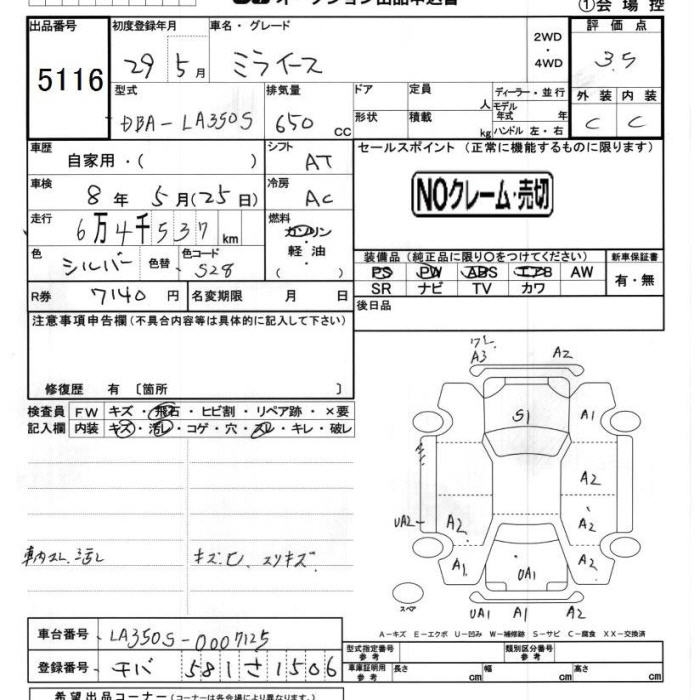 オークション出品申込書
①会場控
出品番号 5116
初度登録年月 29 5月
車名・グレード ミライース
2WD・4WD
評価点 3.5
型式 DBA-LA350S
排気量 650 cc
ドア
形状
定員 人
積載 kg
ディーラー・並行
モデル年式 年
ハンドル 左・右
外装 C 内装 C
車歴 自家用・( )
シフト AT
セールスポイント (正常に機能するものに限ります)
NOクレーム・売切
車検 8年 5月(25日)
冷房 AC
走行 6万4千537km
燃料 ガソリン・軽油・( )
色 シルバー 色替 色コード S28
装備品(純正品に限り○をつけてください)
新車保証書 有・無
PS PW ABS エアB AW
SR ナビ TV カワ
R券 7140円 名変期限 月 日
後日品
注意事項申告欄(不具合内容等は具体的に記入して下さい)
修復歴 有〔箇所 〕
検査員記入欄
FW キズ・飛石・ヒビ割・リペア跡・×要
内装 キズ・汚レ・コゲ・穴・スレ・キレ・破レ
ワレ
A3 A2
S1 A1
A2
UA2 A2 A2
A1 UA1 A2
スペア
UA1 A1 A2
車内スレ、汚レ
キズ、ヒ、スリキズ
A-キズ E-エクボ U-凹み W-補修跡 S-サビ C-腐食 XX-交換済
車台番号 LA350S-0007125
登録番号 チバ 581 さ 1506
型式指定番号 参考
類別区分番号 参考
車庫証明用 参考
長さ cm 幅 cm 高さ cm
希望出品コーナー(コーナーは各会場により異なります。)